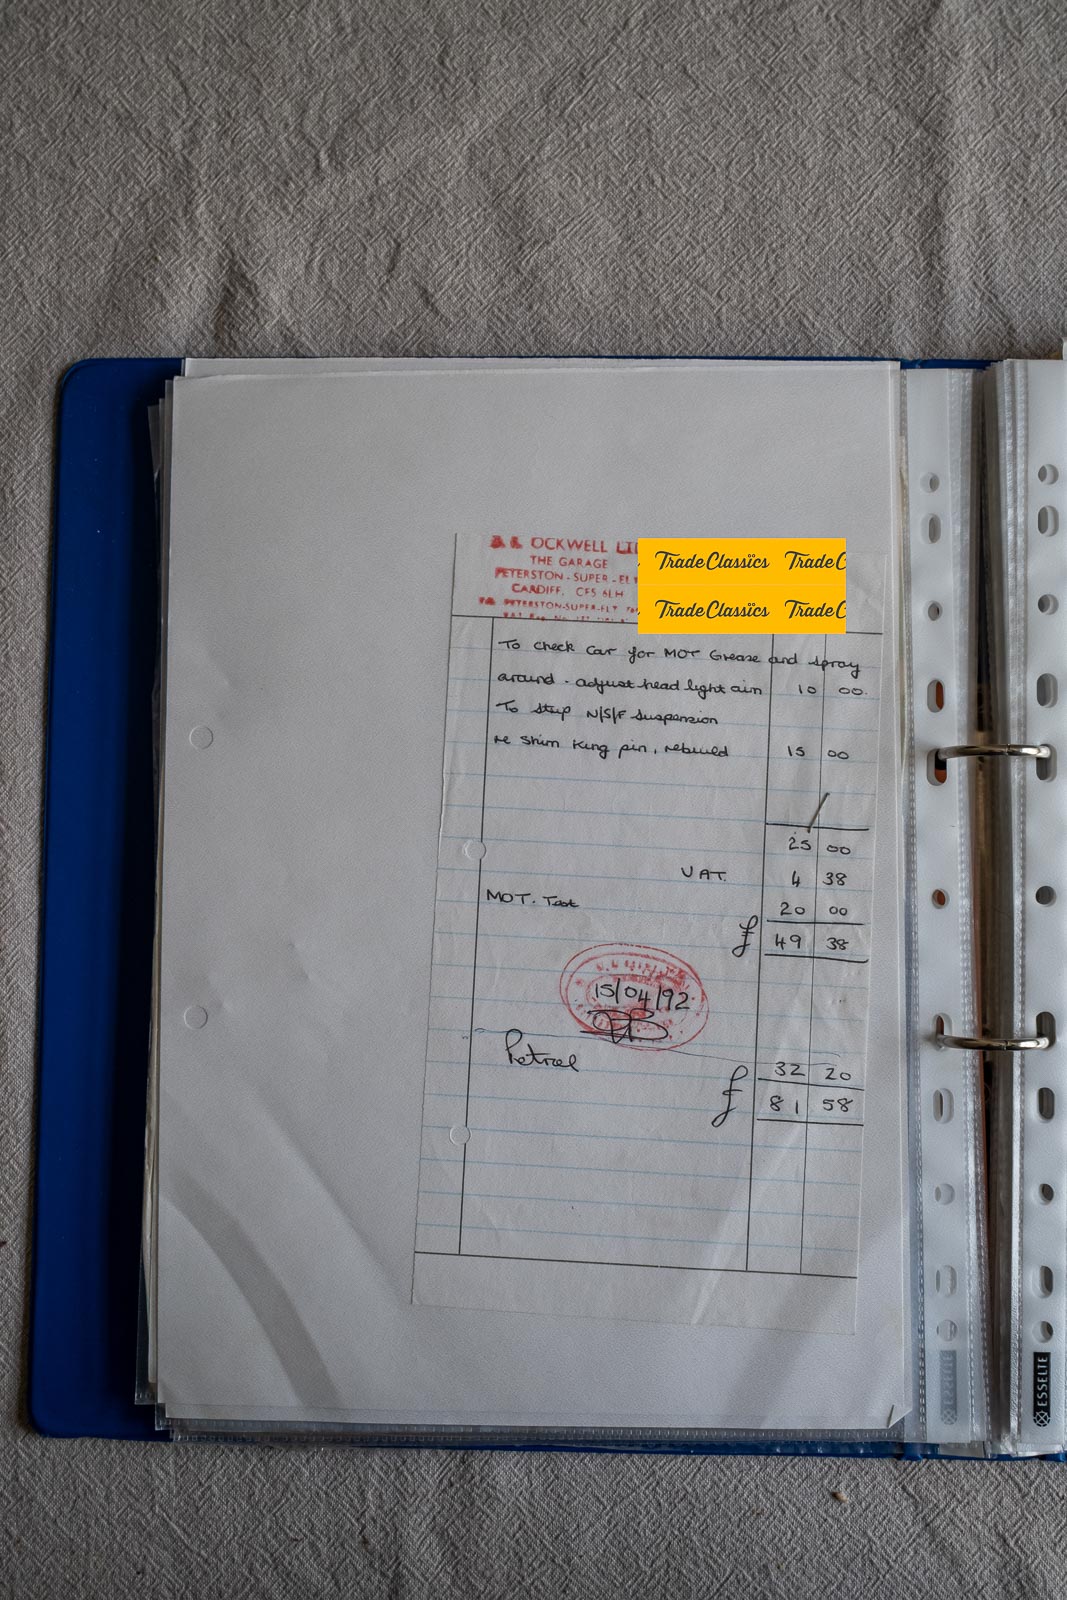 OCKWELL
THE GARAGE
PETERSTON-SUPER-
CARDIFF. CF5 6LH
PETERSTON-SUPER-ELY
TradeClassics TradeC
TradeClassics TradeC
To check car for MOT Grease and spray
around. adjust head light aim 10 00
To strip N/S/F suspension
re shim king pin, rebuild 15 00
25 00
VAT. 4 38
MOT. Test 20 00
£ 49 38
15/04/92
Petrol 32 20
£ 81 58
ESSELTE
ESSELTE